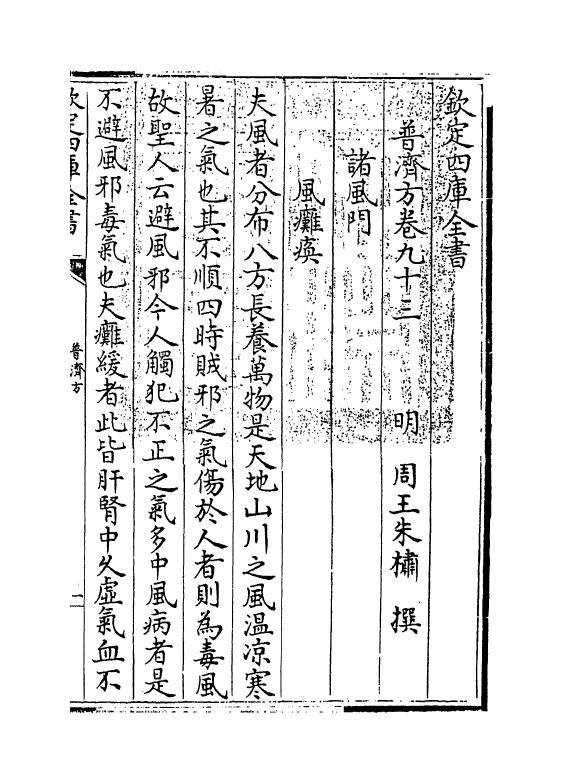 欽定四庫全書
普濟方卷九十三 明 周王朱橚 撰
諸風門
風癱瘓
夫風者分布八方長養萬物是天地山川之風温凉寒
暑之氣也其不順四時賊邪之氣傷於人者則為毒風
故聖人云避風邪今人觸犯不正之氣多中風病者是
不避風邪毒氣也夫癱緩者此皆肝腎中久虛氣血不
欽定四庫全書
普濟方